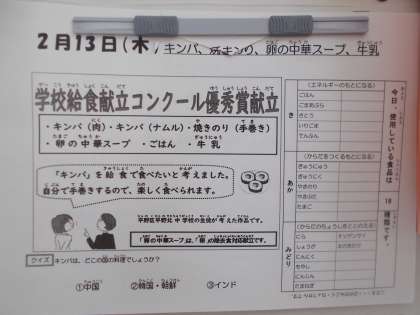 2月13日(木)キンパ、焼きのり、卵の中華スープ、牛乳
学校給食献立コンクール優秀賞献立
・キンパ(肉)・キンパ(ナムル)・焼きのり(手巻き)
・卵の中華スープ ・ごはん ・牛乳
「キンパ」を給食で食べたいと考えました。
自分で手巻きするので、楽しく食べられます。
中学校の生徒が考えた作品です。
「卵の中華スープ」は、「卵」の除去食対応献立です。
クイズ キンパは、どこの国の料理でしょうか?
①中国 ②韓国・朝鮮 ③インド
今日、使用している食品は
18
種類です。
き
(エネルギーのもとになる)
ごはん
ごまあぶら
さとう
いりごま
でんぷん
あか
(からだをつくるもとになる)
ぎゅうにゅう
ぎゅうにく
やきのり
たまご
みどり
(からだのちょうしをととのえる)
にら
しょうが
にんにく
もやし
にんじん
たまねぎ